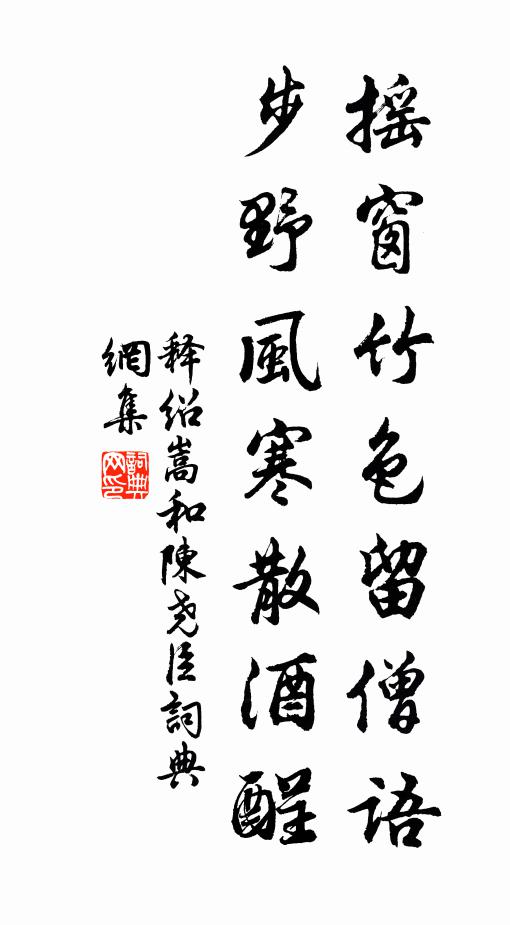 搖窗竹色留僧語
步野風寒散酒醒
释绍嵩和陳尧臣詞典
網集
詞典
网印